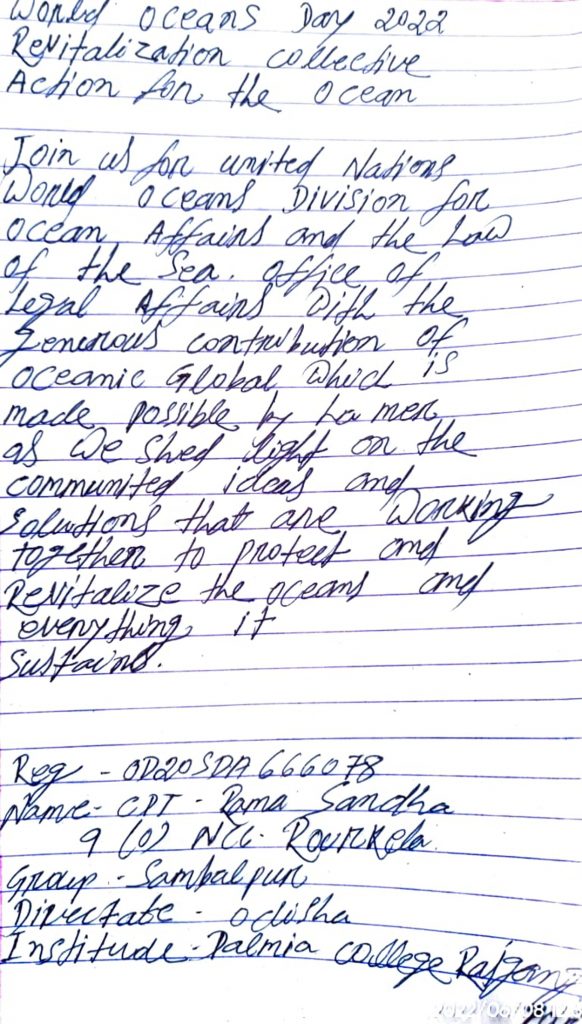 World Oceans Day 2022
Revitalization collective
Action for the Ocean
Join us for united Nations
World Oceans Division for
Ocean Affairs and the Law
of the Sea. office of
Legal Affairs With the
generous contribution of
Oceanic Global Which is
made possible by La mer,
as We Shed light on the
communited ideas and
solutions that are Working
together to protect and
Revitalize the oceans and
everything it
Sustains.
Reg - OD20SDA666078
Name - CPT - Rama Sandha
9 (O) NCC - Rourkela
Group - Sambalpur
Directate - Odisha
Institude - Dalmia College Rajgang
2022/06/08